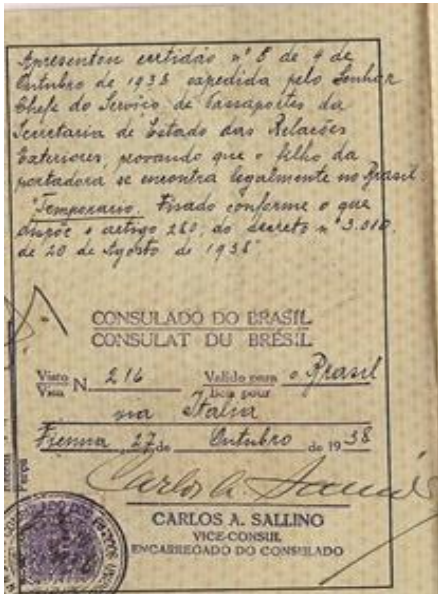 Apresentou certidão nº 8 de 4 de
Outubro de 1938 expedida pelo Senhor
Chefe do Serviço de Passaportes da
Secretaria de Estado das Relações
Exteriores, provando que o filho da
portadora se encontra legalmente no Brasil.
"Temporario. Visado conforme o que
dispõe o artigo 280, do decreto nº 3.010,
de 20 de Agosto de 1938"
CONSULADO DO BRASIL
CONSULAT DU BRÉSIL
Visto N. 216 Valido para o Brasil
Visa Bon pour
via Italia
Vienna 27 de Outubro de 1938
CARLOS A. SALLINO
VICE-CONSUL
ENCARREGADO DO CONSULADO